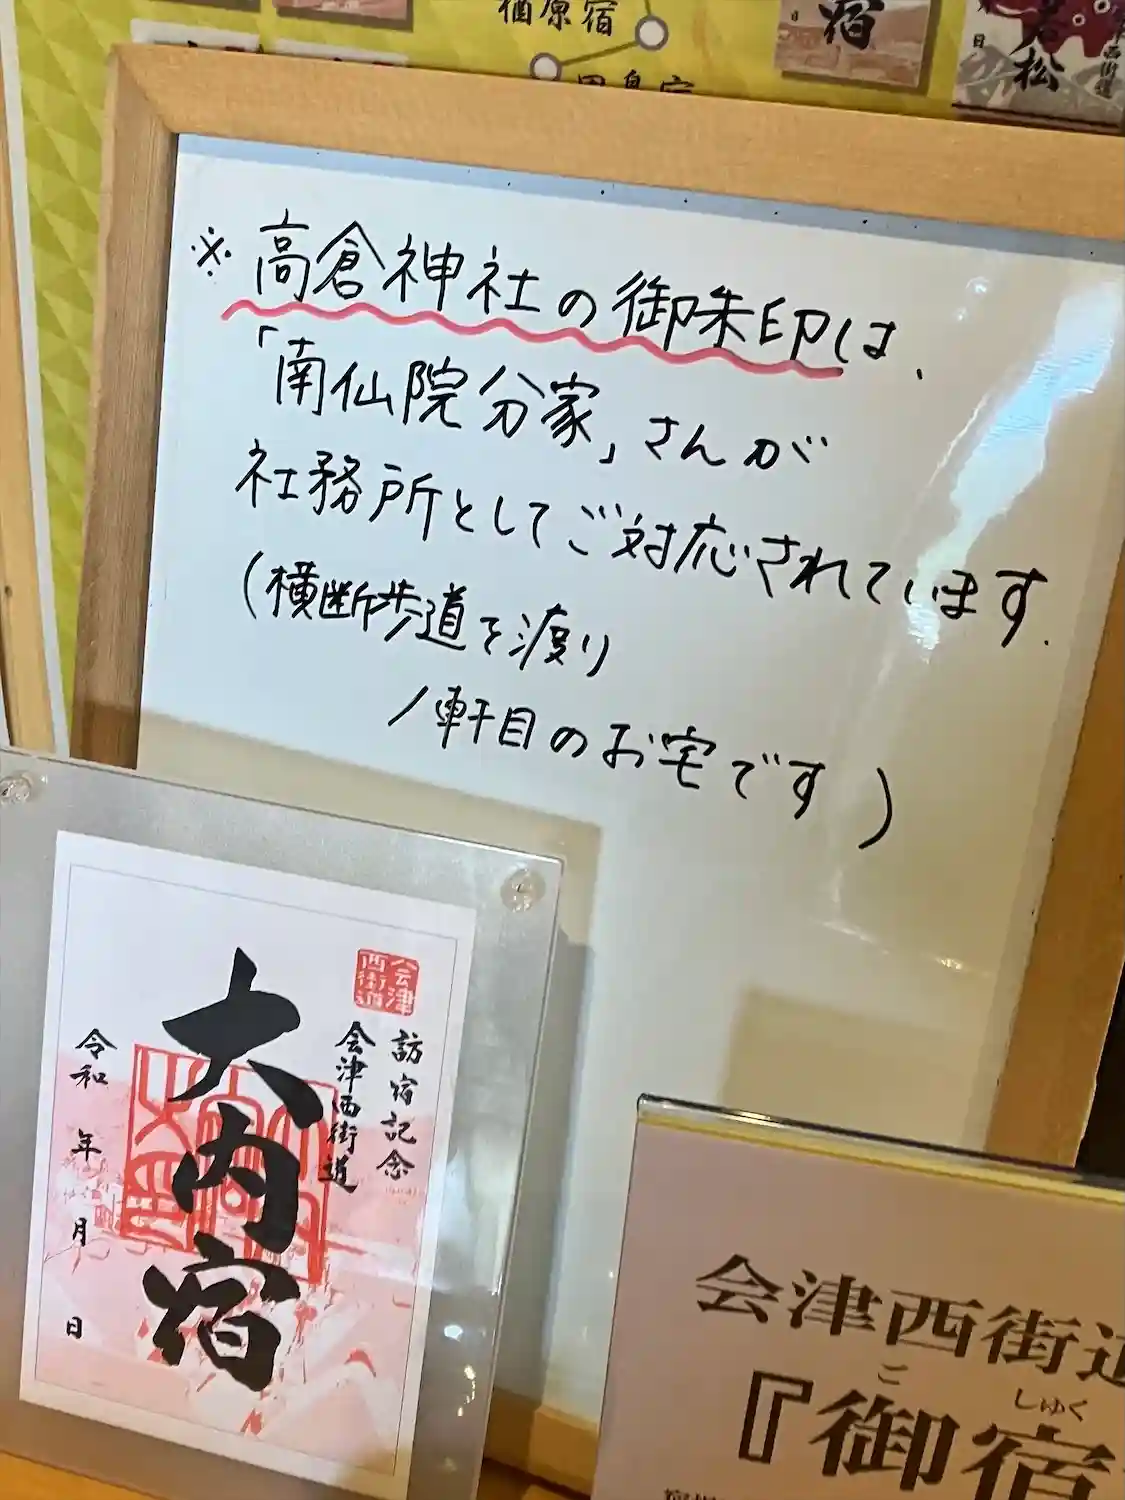 楢原宿
宿
日
若松
西街道
※高倉神社の御朱印は、
「南仙院分家」さんが
社務所としてご対応されています.
(横断歩道を渡り
1軒目のお宅です)
会津
西街道
訪宿記念
会津西街道
大内宿
令和 年 月 日
会津西街道
『御宿
ご
しゅく